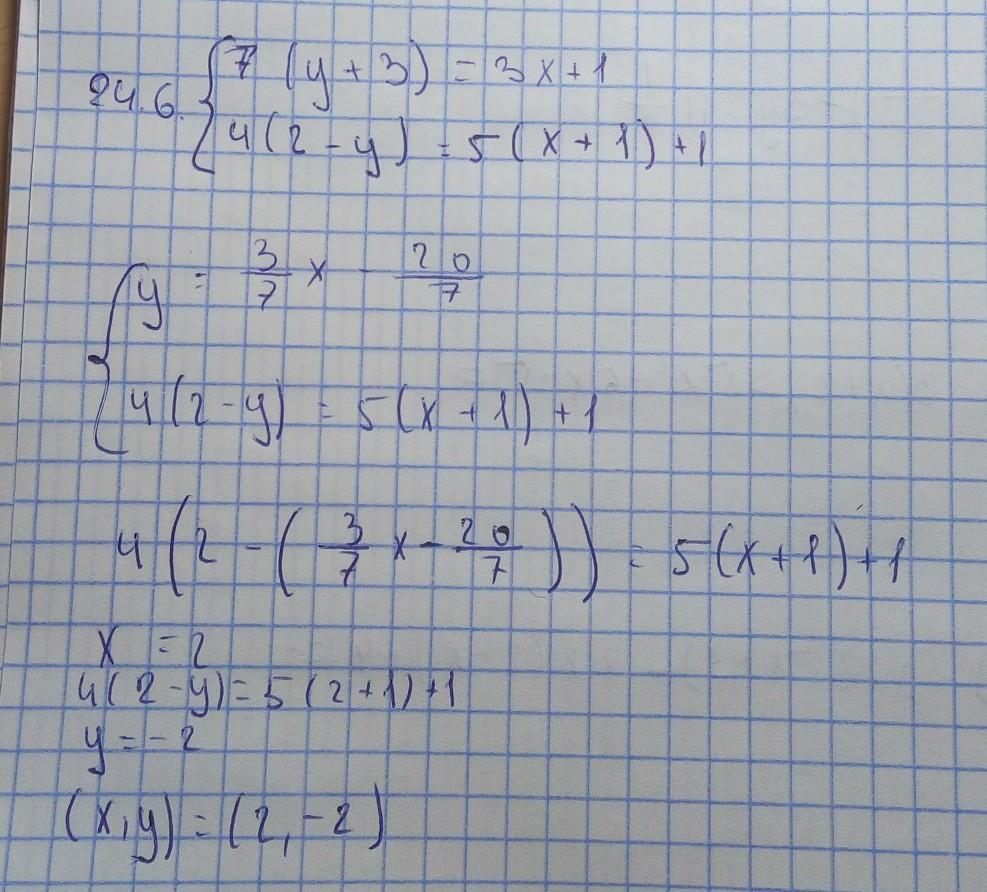 24.6. { 7 (y + 3) = 3x + 1
4(2 - y) = 5(x + 1) + 1
{ y = 3/7 x - 20/7
4(2 - y) = 5(x + 1) + 1
4(2 - (3/7 x - 20/7)) = 5(x + 1) + 1
x = 2
4(2 - y) = 5(2 + 1) + 1
y = -2
(x, y) = (2, -2)